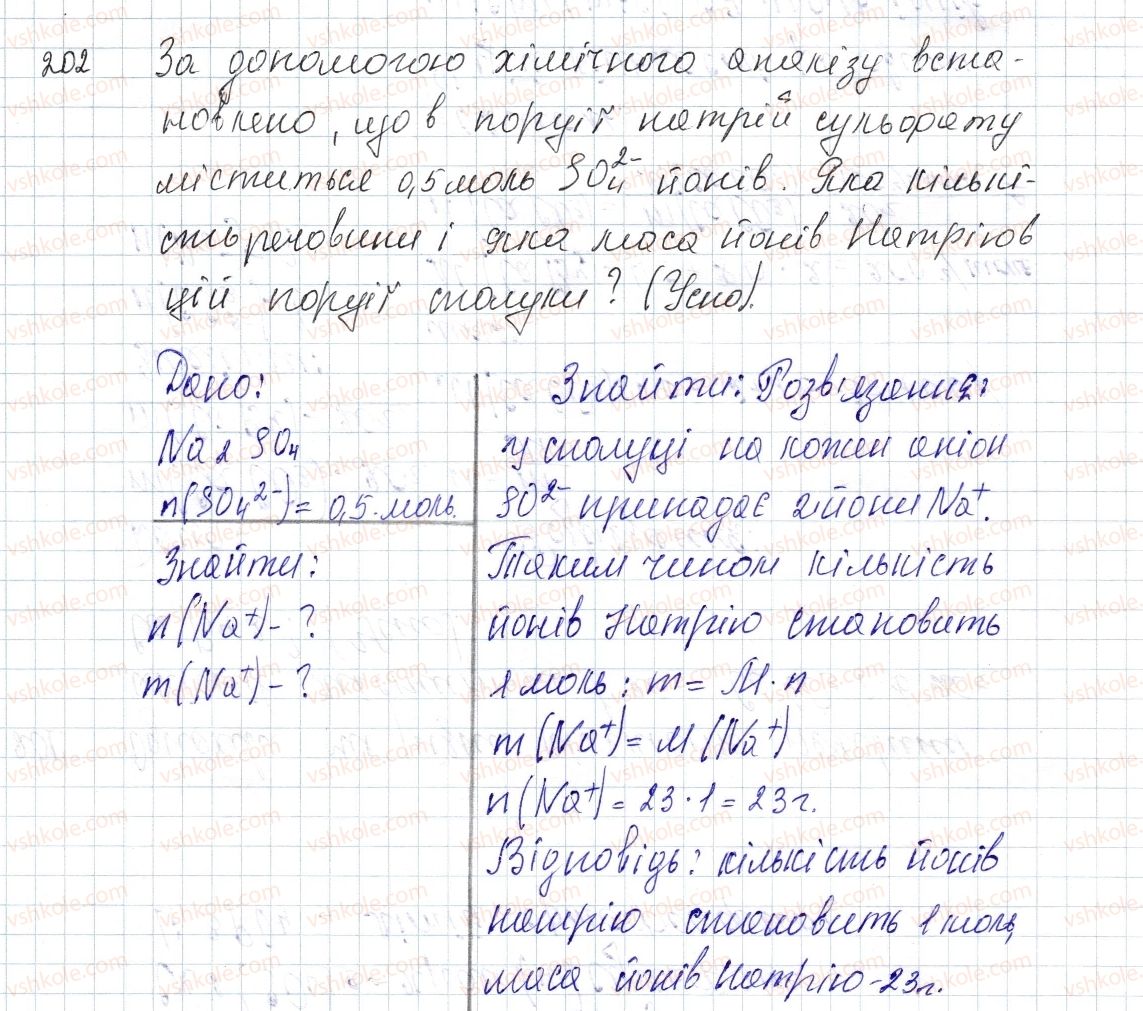 202 За допомогою хімічного аналізу вста-
новлено, що в порції натрій сульфату
міститься 0,5 моль SO₄²⁻ йонів. Яка кількі-
сть речовини і яка маса йонів Натрію в
цій порції сполуки? (Усно).
Дано:
Na₂SO₄
n(SO₄²⁻) = 0,5 моль.
Знайти:
n(Na⁺) - ?
m(Na⁺) - ?
Знайти: Розв'язання:
У сполуці на кожен аніон
SO²⁻ припадає 2 йони Na⁺.
Таким чином кількість
йонів Натрію становить
1 моль: m = M · n
m(Na⁺) = M(Na⁺)
n(Na⁺) = 23 · 1 = 23 г.
Відповідь: кількість йонів
натрію становить 1 моль,
маса йонів Натрію - 23г.